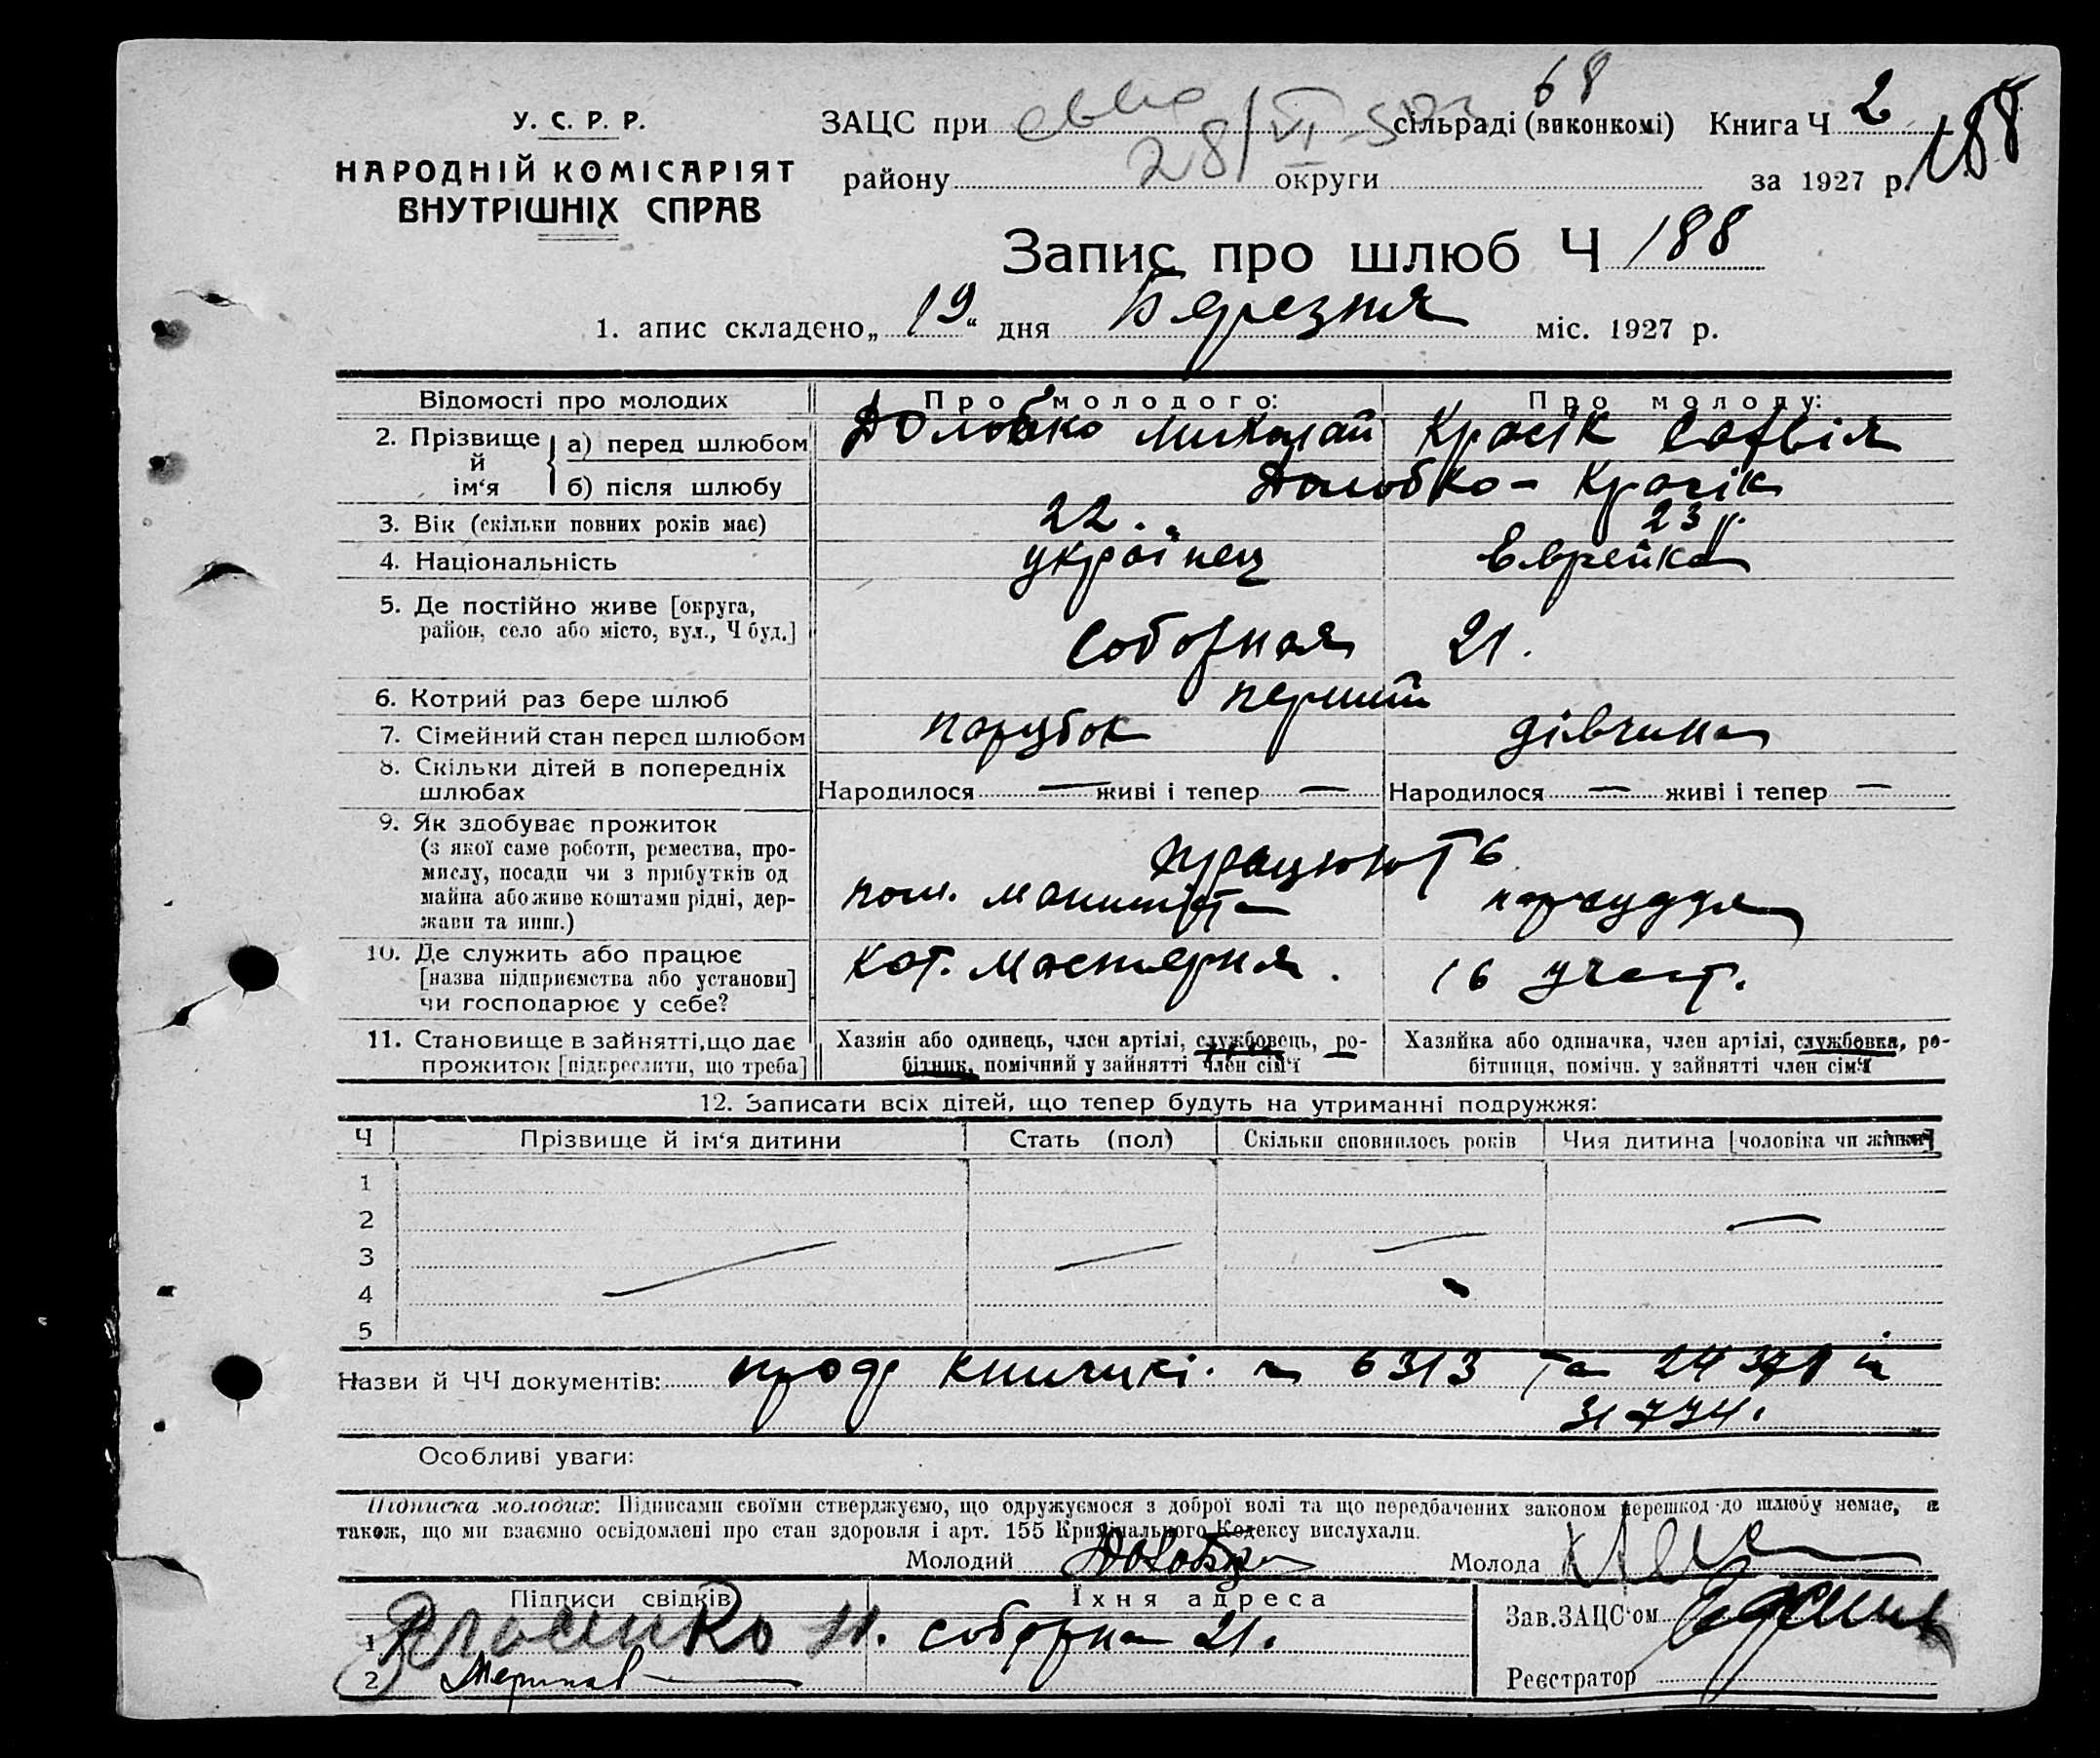 68
У. С. Р. Р.
НАРОДНІЙ КОМІСАРІЯТ
ВНУТРІШНІХ СПРАВ
ЗАЦС при сільраді (виконкомі) Книга Ч 2
188
району 28/VI округи за 1927 р.
Запис про шлюб Ч 188
1. апис складено „19“ дня Березня міс. 1927 р.
Відомості про молодих Про молодого: Про молоду:
2. Прізвище й ім‘я а) перед шлюбом Долобко Михалай Красік Софвія
б) після шлюбу Долобко - Красік
3. Вік (скільки повних років має) 22. 23 р.
4. Національність українец Еврейка
5. Де постійно живе [округа,
район, село або місто, вул., Ч буд.] Соборная 21.
6. Котрий раз бере шлюб перший
7. Сімейний стан перед шлюбом парубок дівчина
8. Скільки дітей в попередніх
шлюбах Народилося — живі і тепер — Народилося — живі і тепер —
9. Як здобуває прожиток
(з якої саме роботи, ремества, про-
мислу, посади чи з прибутків од
майна або живе коштами рідні, дер-
жави та инш.)
працюють
пом. машиніста
10. Де служить або працює
[назва підприємства або установи]
чи господарює у себе?
Кот. Мастерня. 16 участ.
11. Становище в зайнятті, що дає
прожиток [підкреслити, що треба]
Хазяін або одинець, член артілі, службовець, ро-
бітник, помічний у зайнятті член сім‘ї
Хазяйка або одиначка, член артілі, службовка, ро-
бітниця, помічн. у зайнятті член сім‘ї
12. Записати всіх дітей, що тепер будуть на утриманні подружжя:
Ч Прізвище й ім‘я дитини Стать (пол) Скільки сповнилось років Чия дитина [чоловіка чи жінки]
1
2
3
4
5
Назви й ЧЧ документів: книжкі. 6313 та
31774.
Особливі уваги:
Підписка молодих: Підписами своїми стверджуємо, що одружуємося з доброї волі та що передбачених законом перешкод до шлюбу немає, а
також, що ми взаємно освідомлені про стан здоровля і арт. 155 Кримінального Кодексу вислухали.
Молодий Молода
Підписи свідків Їхня адреса
1 Власенко Н. Соборна 21.
2
Зав. ЗАЦС‘ом
Реєстратор